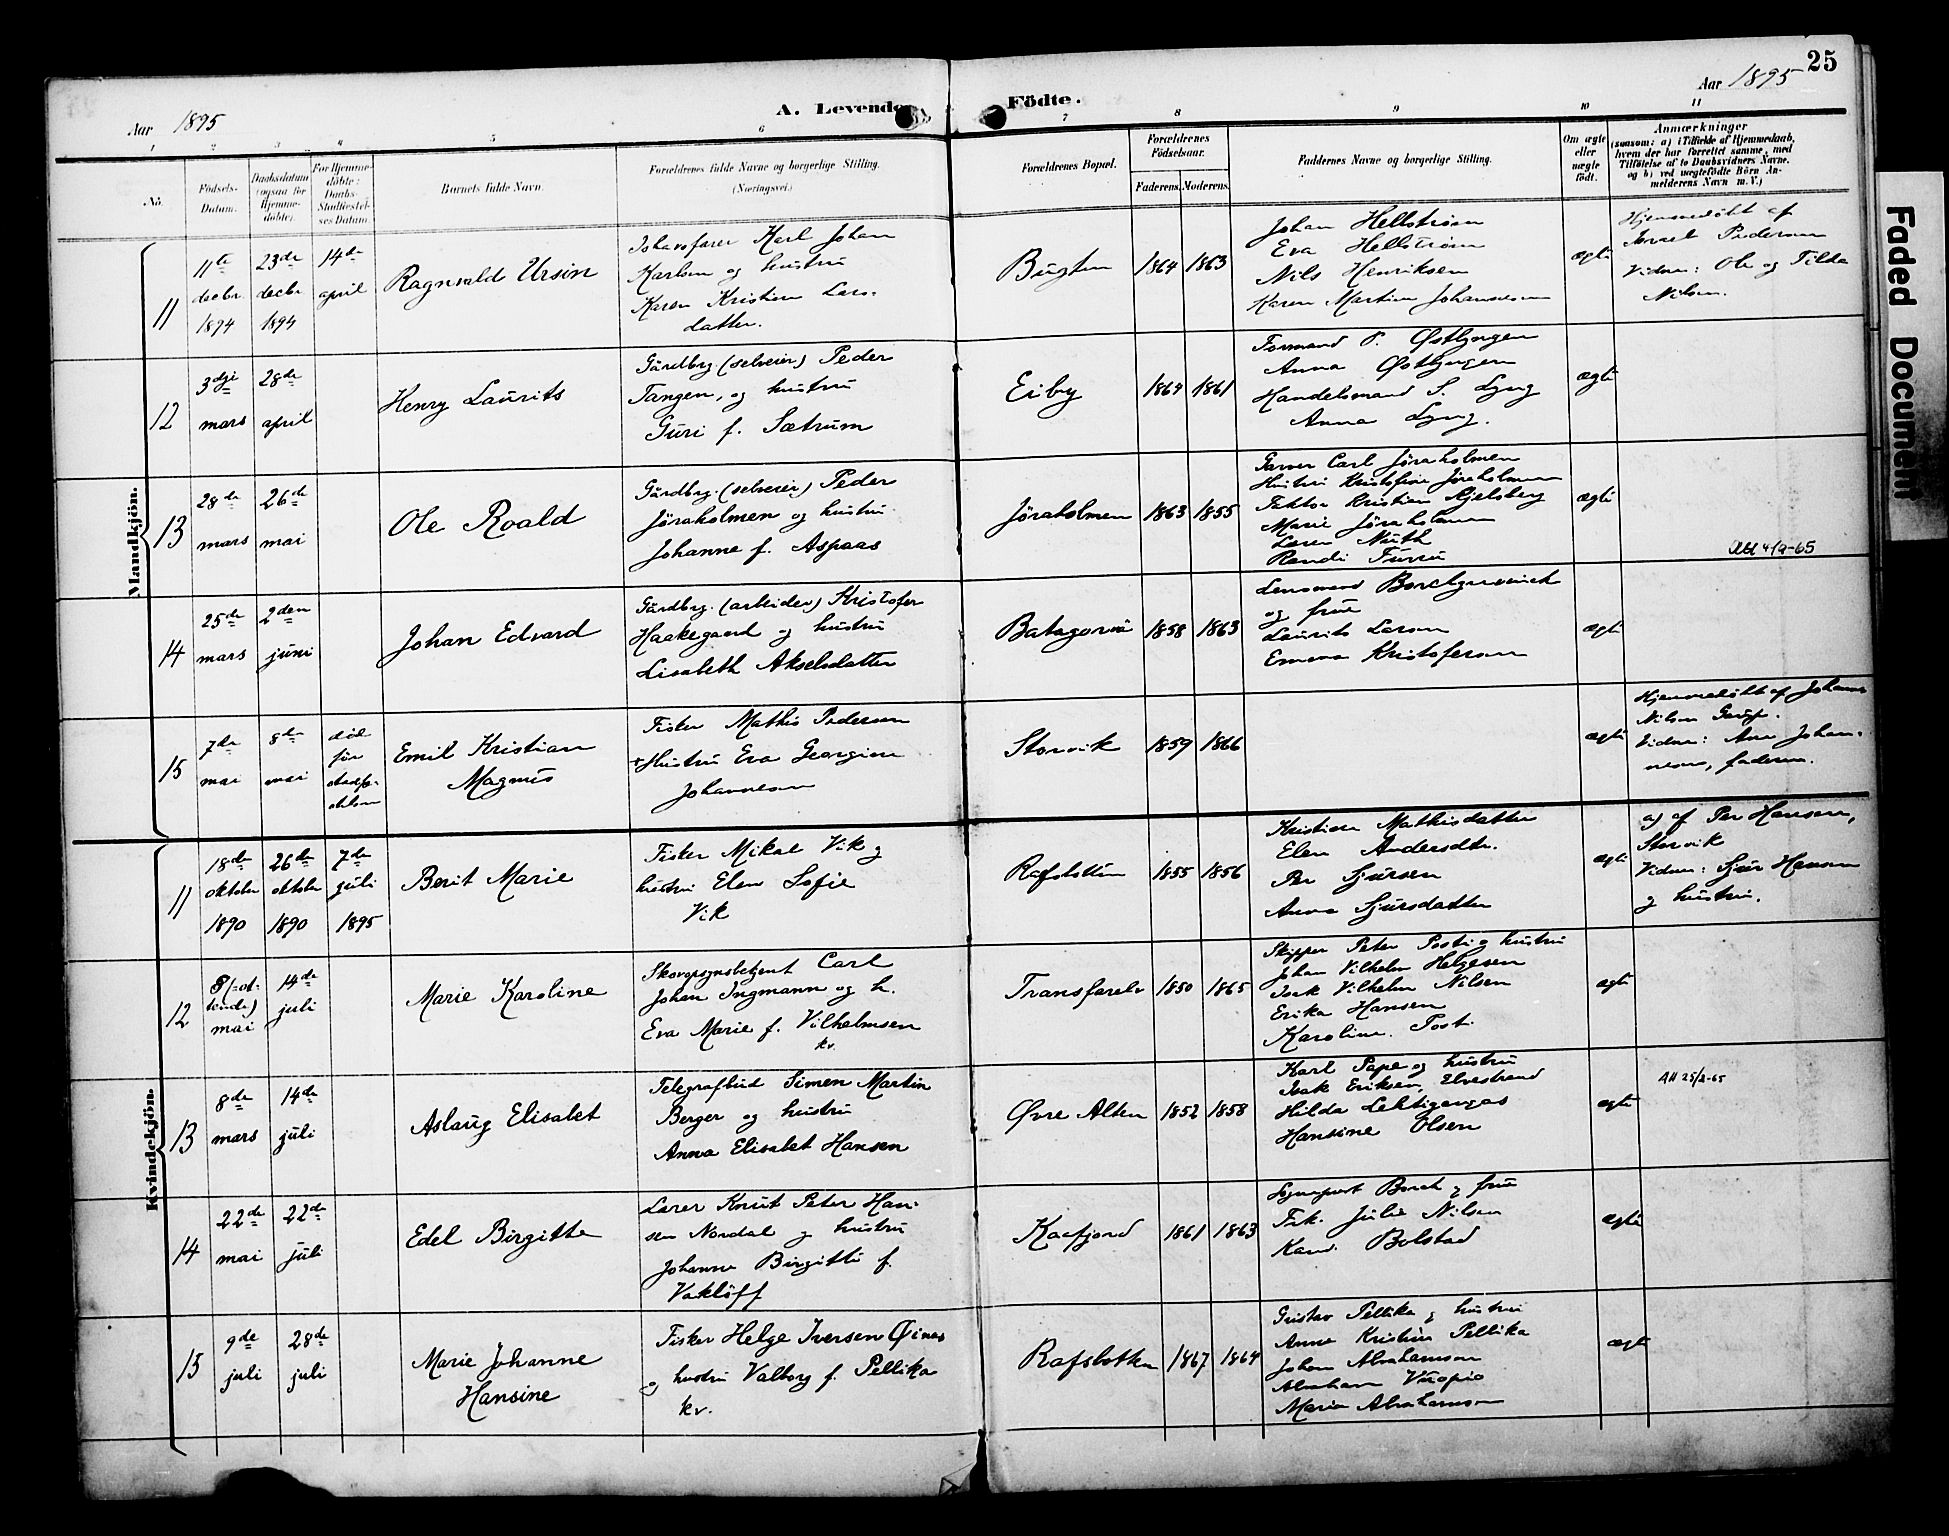 25
Aar 1895
A. Levende Födte.
Aar 1895
1 2 3 4 5 6 7 8 9 10 11
No.
Födsels-
Datum.
Daabsdatum
(ogsaa for
Hjemme-
döbte).
For Hjemme-
döbte:
Daabs-
Stadfæstel-
ses Datum.
Barnets fulde Navn.
Forældrenes fulde Navne og borgerlige Stilling.
(Næringsvei.)
Forældrenes Bopæl.
Forældrenes
Födselsaar.
Faderens.
Moderens.
Faddernes Navne og borgerlige Stilling.
Om ægte
eller
uægte
födt.
Anmærkninger
(saasom: a) i Tilfælde af Hjemmedaab,
hvem der har forrettet samme, med
Tilföielse af to Daabsvidners Navne,
og b) ved uægtefödte Börn An-
melderens Navn m. V.)
Mandkjön.
11
11te
decbr
1894
23de
decbr
1894
14de
april
Ragnvald Ursin
Ishavsfarer Karl Johan
Karlsen og hustru
Karen Kristine Lars-
datter.
Bugten
1864
1863
Johan Hellstrøm
Eva Hellstrøm
Nils Henriksen
Karen Martine Johannesen
ægte
Hjemmedøbt af
Israel Pedersen
Vidner: Ole og Tilda
Nilsen.
12
3dje
mars
28de
april
Henry Laurits
Gårdbrg. (selveier) Peder
Tangen, og hustru
Guri f. Sætrum
Eiby
1864
1861
Formand P. Østlyngen
Anna Østlyngen
Handelsmand S. Lyng
Anna Lyng.
ægte
13
28de
mars
26de
mai
Ole Roald
Gårdbrg. (selveier) Peder
Jøraholmen og hustru
Johanne f. Aspaas
Jøraholmen
1863
1855
Garver Carl Jøraholmen
Hustru Kristofine Jøraholmen
Faktor Kristian Kjelsberg
Marie Jøraholmen
Lærer Muth
Randi Furru
ægte
4/9-65
14
25de
mars
2den
juni
Johan Edvard
Gårdbrg. (arbeider) Kristofer
Haakegaard og hustru
Lisabeth Akselsdatter
1858
1863
Lensmand Borchgrevinck
og frue
Laurits Larsen
Emma Kristofersen
ægte
15
7de
mai
8de
mai
død
før
stadfæ-
stelsen
Emil Kristian
Magnus
Fisker Mathis Pedersen
Hustru Eva Georgine
Johannesen
Storvik
1859
1866
ægte
Hjemmedøbt af Johannes
Nilsen
Vidner: Ane Johan-
nesen, faderen.
Kvindekjön.
11
18de
oktober
1890
26de
oktober
1890
7de
juli
1895
Berit Marie
Fisker Mikal Vik og
hustru Elen Sofie
Vik
Rafsbotten
1855
1856
Kristiane Mathisdatter
Elen Andersdtr.
Per Sjursen
Anna Sjursdatter
ægte
a) af Per Hansen,
Storvik
Vidner: Sjur Hansen
og hustru.
12
8 (=ot-
tende)
mai
14de
juli
Marie Karoline
Skovopsynsbetjent Carl
Johan Ingmann og h.
Eva Marie f. Vilhelmsen
kv.
Transfarelv
1850
1865
Skipper Peter Posti og hustru
Johan Vilhelm Helgesen
Isak Vilhelm Nilsen
Erika Hansen
Karoline Posti
ægte
13
8de
mars
14de
juli
Aslaug Elisabet
Telegrafbud Simen Martin
Berger og hustru
Anna Elisabet Hansen
Øvre Alten
1852
1858
Karl Pape og hustru
Isak Eriksen, Elvestrand
Hilda Lehtigangas
Hansine Olsen
ægte
AH 25/2-65
14
22de
mai
22de
juli
Edel Birgitte
Lærer Knut Peter Han-
sen Nordal og hustru
Johanne Birgitte f.
Vakløff
Kaafjord
1861
1863
Sogneprest Borch og frue
Frk. Julie Nilsen
Kand. Bolstad
ægte
15
9de
juli
28de
juli
Marie Johanne
Hansine
Fisker Helge Iversen Øinas
og hustru Valborg f. Pellika
kv.
Rafsbotten
1867
1864
Gustav Pellika og hustru
Anna Kristine Pellika
Johan Abrahamsen
Abraham Vuopio
Maria Abrahamsen
ægte
Faded Document